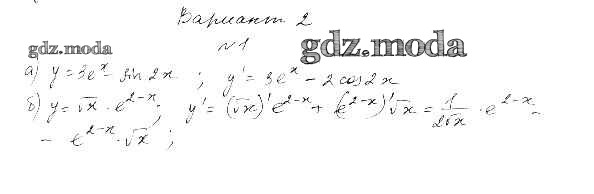 Вариант 2
gdz.moda
№1
gdz.moda
а) y = 3eˣ - sin 2x ; y' = 3eˣ - 2 cos 2x
б) y = √x · e²⁻ˣ ; y' = (√x)' e²⁻ˣ + (e²⁻ˣ)' √x = 1/(2√x) · e²⁻ˣ -
- e²⁻ˣ · √x ;